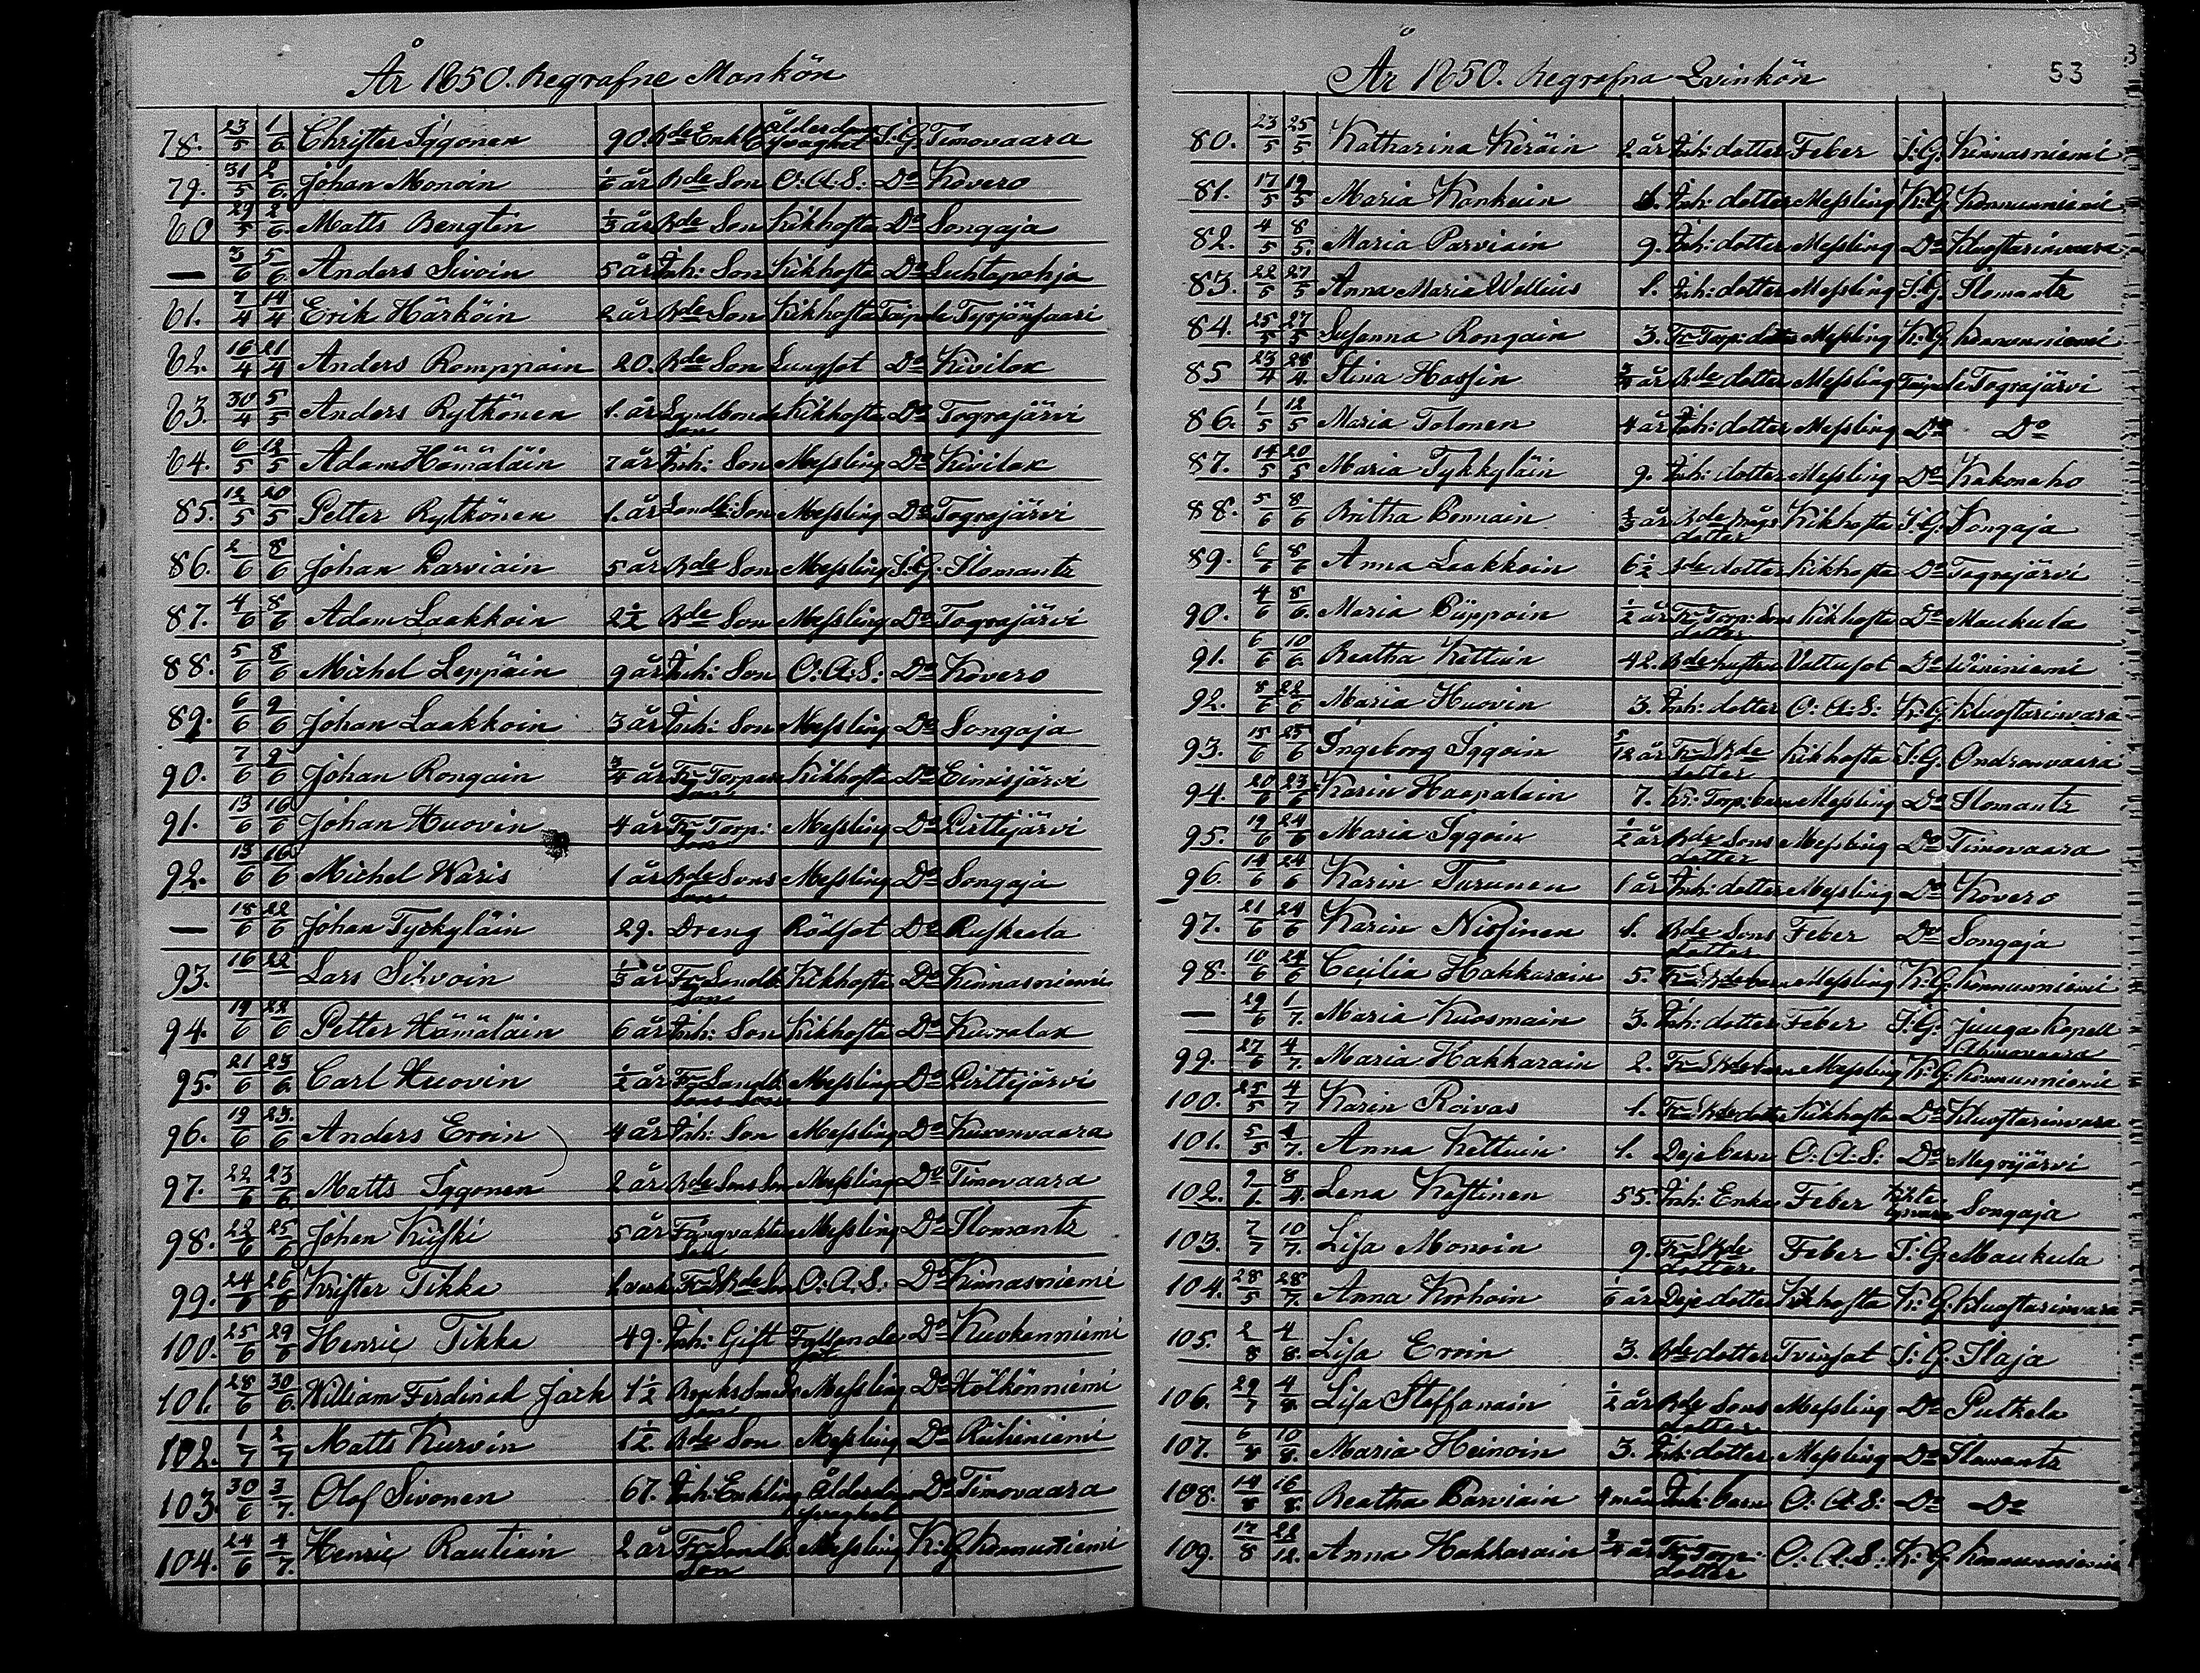 År 1850. Begrafne Mankön
78. 23/5 1/6 Christer Iggonen 90. Bde Enkl Ålderdoms svaghet I:G: Timovaara
79. 31/5 2/6 Johan Monoin 1/6 år Bde Son O:A:S: Do Kovero
80 29/5 2/6 Matts Bengtin 1/3 år Bde Son Kikhosta Do Songaja
— 3/6 5/6 Anders Sivoin 5 år Inh: Son Kikhosta Do Luhtapohja
81. 7/4 14/4 Erik Härköin 2 år Bde Son Kikhosta Taipale Tyrjänsaari
82. 16/4 21/4 Anders Romppain 20. Bde Son Lungsot Do Kivilax
83. 30/4 5/5 Anders Rytkönen 1. år Landbonde Son Kikhosta Do Tograjärvi
84. 6/5 12/5 Adam Hämäläin 7 år Inh: Son Messling Do Kivilax
85. 12/5 20/5 Petter Rytkönen 1. år Landb: Son Messling Do Tograjärvi
86. 2/6 8/6 Johan Parviain 5 år Bde Son Messling I:G: Ilomants
87. 4/6 8/6 Adam Laakkoin 2 1/2 Bde Son Messling Do Tograjärvi
88. 5/6 8/6 Michel Leppäin 9 år Inh: Son O:A:S: Do Kovero
89. 6/6 9/6 Johan Laakkoin 3 år Inh: Son Messling Do Songaja
90. 7/6 9/6 Johan Rongain 3/4 år Kr Torpare Son Kikhosta Do Eimisjärvi
91. 13/6 16/6 Johan Huovin 4 år Kr Torp: Son Messling Do Pirttijärvi
92. 13/6 16/6 Michel Waris 1 år Bde Sons Son Messling Do Songaja
— 18/6 22/6 Johan Tyckyläin 29. Dreng Rödsot Do Ruskeala
93. 16 22 Lars Silvoin 1/3 år Kr Landb Son Kikhosta Do Kinnasniemi
94. 19/6 22/6 Petter Hämäläin 6 år Inh: Son Kikhosta Do Kuoralax
95. 21/6 23/6 Carl Huovin 1/2 år Kr Landb Sons Son Messling Do Pirttijärvi
96. 19/6 23/6 Anders Eroin 4 år Inh: Son Messling Do Kuuvenvaara
97. 22/6 23/6 Matts Iggonen 2 år Bde Sons Son Messling Do Timovaara
98. 22/6 25/6 Johan Kuiski 5 år Fångvaktare Son Messling Do Ilomants
99. 24/6 26/6 Krister Tikka Kr SBde Son O:A:S: Do Kinnasniemi
100. 25/6 29/6 Henric Tikka 49. Inh: Gift Do Kuokanniemi
101. 28/6 30/6 William Ferdinad Jack 1 1/2 Bruks Son Messling Do Hölkönniemi
102. 1/7 2/7 Matts Kurvin 1 1/2 Bde Son Messling Do Riihiniemi
103. 30/6 3/7 Olof Sivonen 67. Inh: Enkling Ålderdoms svaghet Do Timovaara
104. 24/6 4/7 Henric Rautiain 2 år Kr Landb Son Messling K:G Konnunniemi
År 1850. Begrafna Qvinkön 53
80. 23/5 25/5 Katharina Keräin 2 år Inh: dotter Feber I:G: Kinnasniemi
81. 17/5 19/5 Maria Kankain 1. Inh: dotter Messling K:G Konnunniemi
82. 4/5 8/5 Maria Parviain 9. Inh: dotter Messling Do Kluostarinvaara
83. 22/5 27/5 Anna Maria Wallius 1. Inh: dotter Messling I:G. Ilomants
84. 25/5 27/5 Susanna Rongain 3. Kr Torp: dotter Messling K:G. Konnunniemi
85 23/4 28/4 Stina Hassin 3/4 år Bde dotter Messling Taipale Tograjärvi
86. 1/5 12/5 Maria Tolonen 4 år Inh: dotter Messling Do Do
87. 14/5 20/5 Maria Tykkyläin 9. Inh: dotter Messling Do Kakonaho
88. 5/6 8/6 Britha Bonnain 2/3 år Bde Mågs dotter Kikhosta I:G. Songaja
89. 6/6 8/6 Anna Laakkoin 6 1/2 Bde dotter Kikhosta Do Tograjärvi
90. 4/6 8/6 Maria Piippoin 1/2 år Kr Torp: Sons dotter Kikhosta Do Maukula
91. 6/6 10/6 Beatha Kettuin 42. Bde hustru Vattusot Do Wiiniemi
92. 8/6 22/6 Maria Huovin 3. Inh: dotter O:A:S: K:G. Kluostarinvaara
93. 15/6 25/6 Ingeborg Iggoin 5/12 år Kr SBde dotter Kikhosta I:G. Andronvaara
94. 20/6 23/6 Karin Haapalain 7. Kr: Torp: barn Messling Do Ilomants
95. 19/6 24/6 Maria Iggoin 1/2 år Bde Sons dotter Messling Do Timovaara
96 14/6 24/6 Karin Turunen 1 år Inh: dotter Messling Do Kovero
97. 21/6 24/6 Karin Nissinen 1. Bde Sons dotter Feber Do Songaja
98. 10/6 24/6 Cecilia Hakkarain 5. Kr SBde barn Messling K:G. Konnunniemi
— 29/6 1/7 Maria Kuosmain 3. Inh: dotter Feber I:G. Juuga Kapell Ahmovaara
99. 27/6 4/7 Maria Hakkarain 2. Kr SBde barn Messling K:G. Konnunniemi
100. 25/5 4/7 Karin Roivas 1. Kr SBde dotter Kikhosta Do Kluostarinvaara
101. 5/5 4/7 Anna Kettuin 1. Deje barn O:A:S: Do Megrijärvi
102. 2/1 8/4 Lena Kestinen 55. Inh: Enka Feber Songaja
103. 7/7 10/7 Lisa Monoin 9. Kr SBde dotter Feber I:G Maukula
104. 28/5 28/7 Anna Korhoin 1/6 år Deje dotter Kikhosta K:G. Kluostarinvaara
105. 2/8 4/8 Lisa Eroin 3. Bde dotter Tvinsot I:G. Ilaja
106. 29/7 4/8 Lisa Staffanain 1/2 år Bde Sons dotter Messling Do Putkela
107. 6/8 10/8 Maria Heinoin 3. Inh: dotter Messling Do Ilomants
108. 14/8 16/8 Beatha Parviain 4 mån Inh: barn O:A:S: Do Do
109. 17/8 22/12 Anna Hakkarain 3/4 år Kr Torp: dotter O:A:S: K:G Konnunniemi